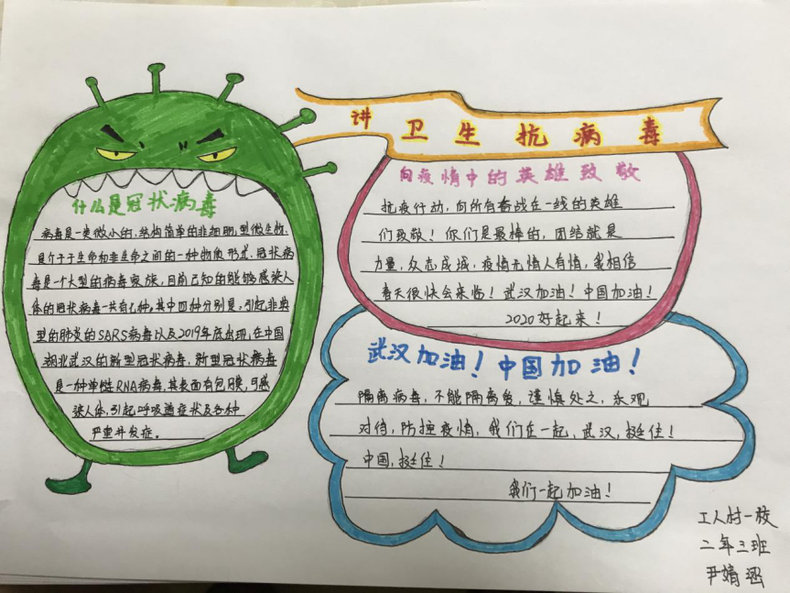 讲卫生抗病毒
什么是冠状病毒
病毒是一类微小的，结构简单的非细胞，型微生物，
是介于于生命和非生命之间的一种物质形式，冠状病
毒是一个大型的病毒家族，目前已知的能够感染人
体的冠状病毒一共有七种，其中四种分别是，引起非典
型的肺炎的SARS病毒以及2019年底出现，在中国
湖北武汉的新型冠状病毒，新型冠状病毒
是一种单链RNA病毒，其表面有包膜，可感
染人体，引起呼吸道症状及各种
严重并发症。
向疫情中的英雄致敬
抗疫行动，向所有奋战在一线的英雄
们致敬！你们是最棒的，团结就是
力量，众志成城，疫情无情人有情，我相信
春天很快会来临！武汉加油！中国加油！
2020好起来！
武汉加油！中国加油！
隔离病毒，不能隔离爱，谨慎处之，乐观
对待，防控疫情，我们在一起，武汉，挺住！
中国，挺住！
我们一起加油！
工人村一校
二年三班
尹婧涵